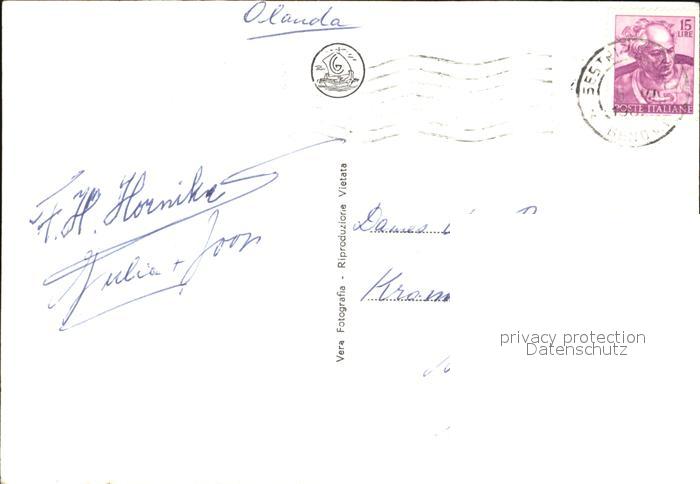 Olanda
15
LIRE
POSTE ITALIANE
GENOVA
F. H. Hornikx
Julia + Joop
Vera Fotografia - Riproduzione Vietata
Dames
Krom
privacy protection
Datenschutz